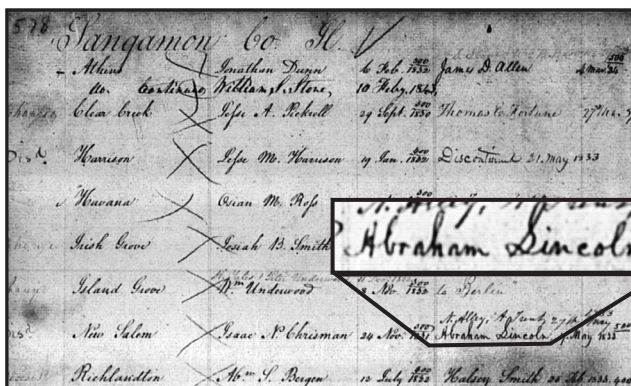 578
Sangamon Co. Il.
Athens Jonathan Dunn 6 Feb. 500 1832 James D. Allen 500
do. Continued, William S. Stone, 10 Feby, 1843,
Clear Creek Jesse A. Pickrell 29 Sept. 500 1830 Thomas C. Fortune
Dis.d Harrison Jesse M. Harrison 19 Jan. 1832 Discontinued 21. May 1833
Havana Osian M. Ross 500
Irish Grove Josiah B. Smith
Island Grove Wm Underwood 2 Nov. 1832 to Berlin
N. Alley,
New Salem Isaac P. Chrisman 24 Nov. 500 Abraham Lincoln 7 May 1833 500
Richlandton Abm S. Bergen 12 July 500 1832 Halsey Smith
Abraham Lincoln